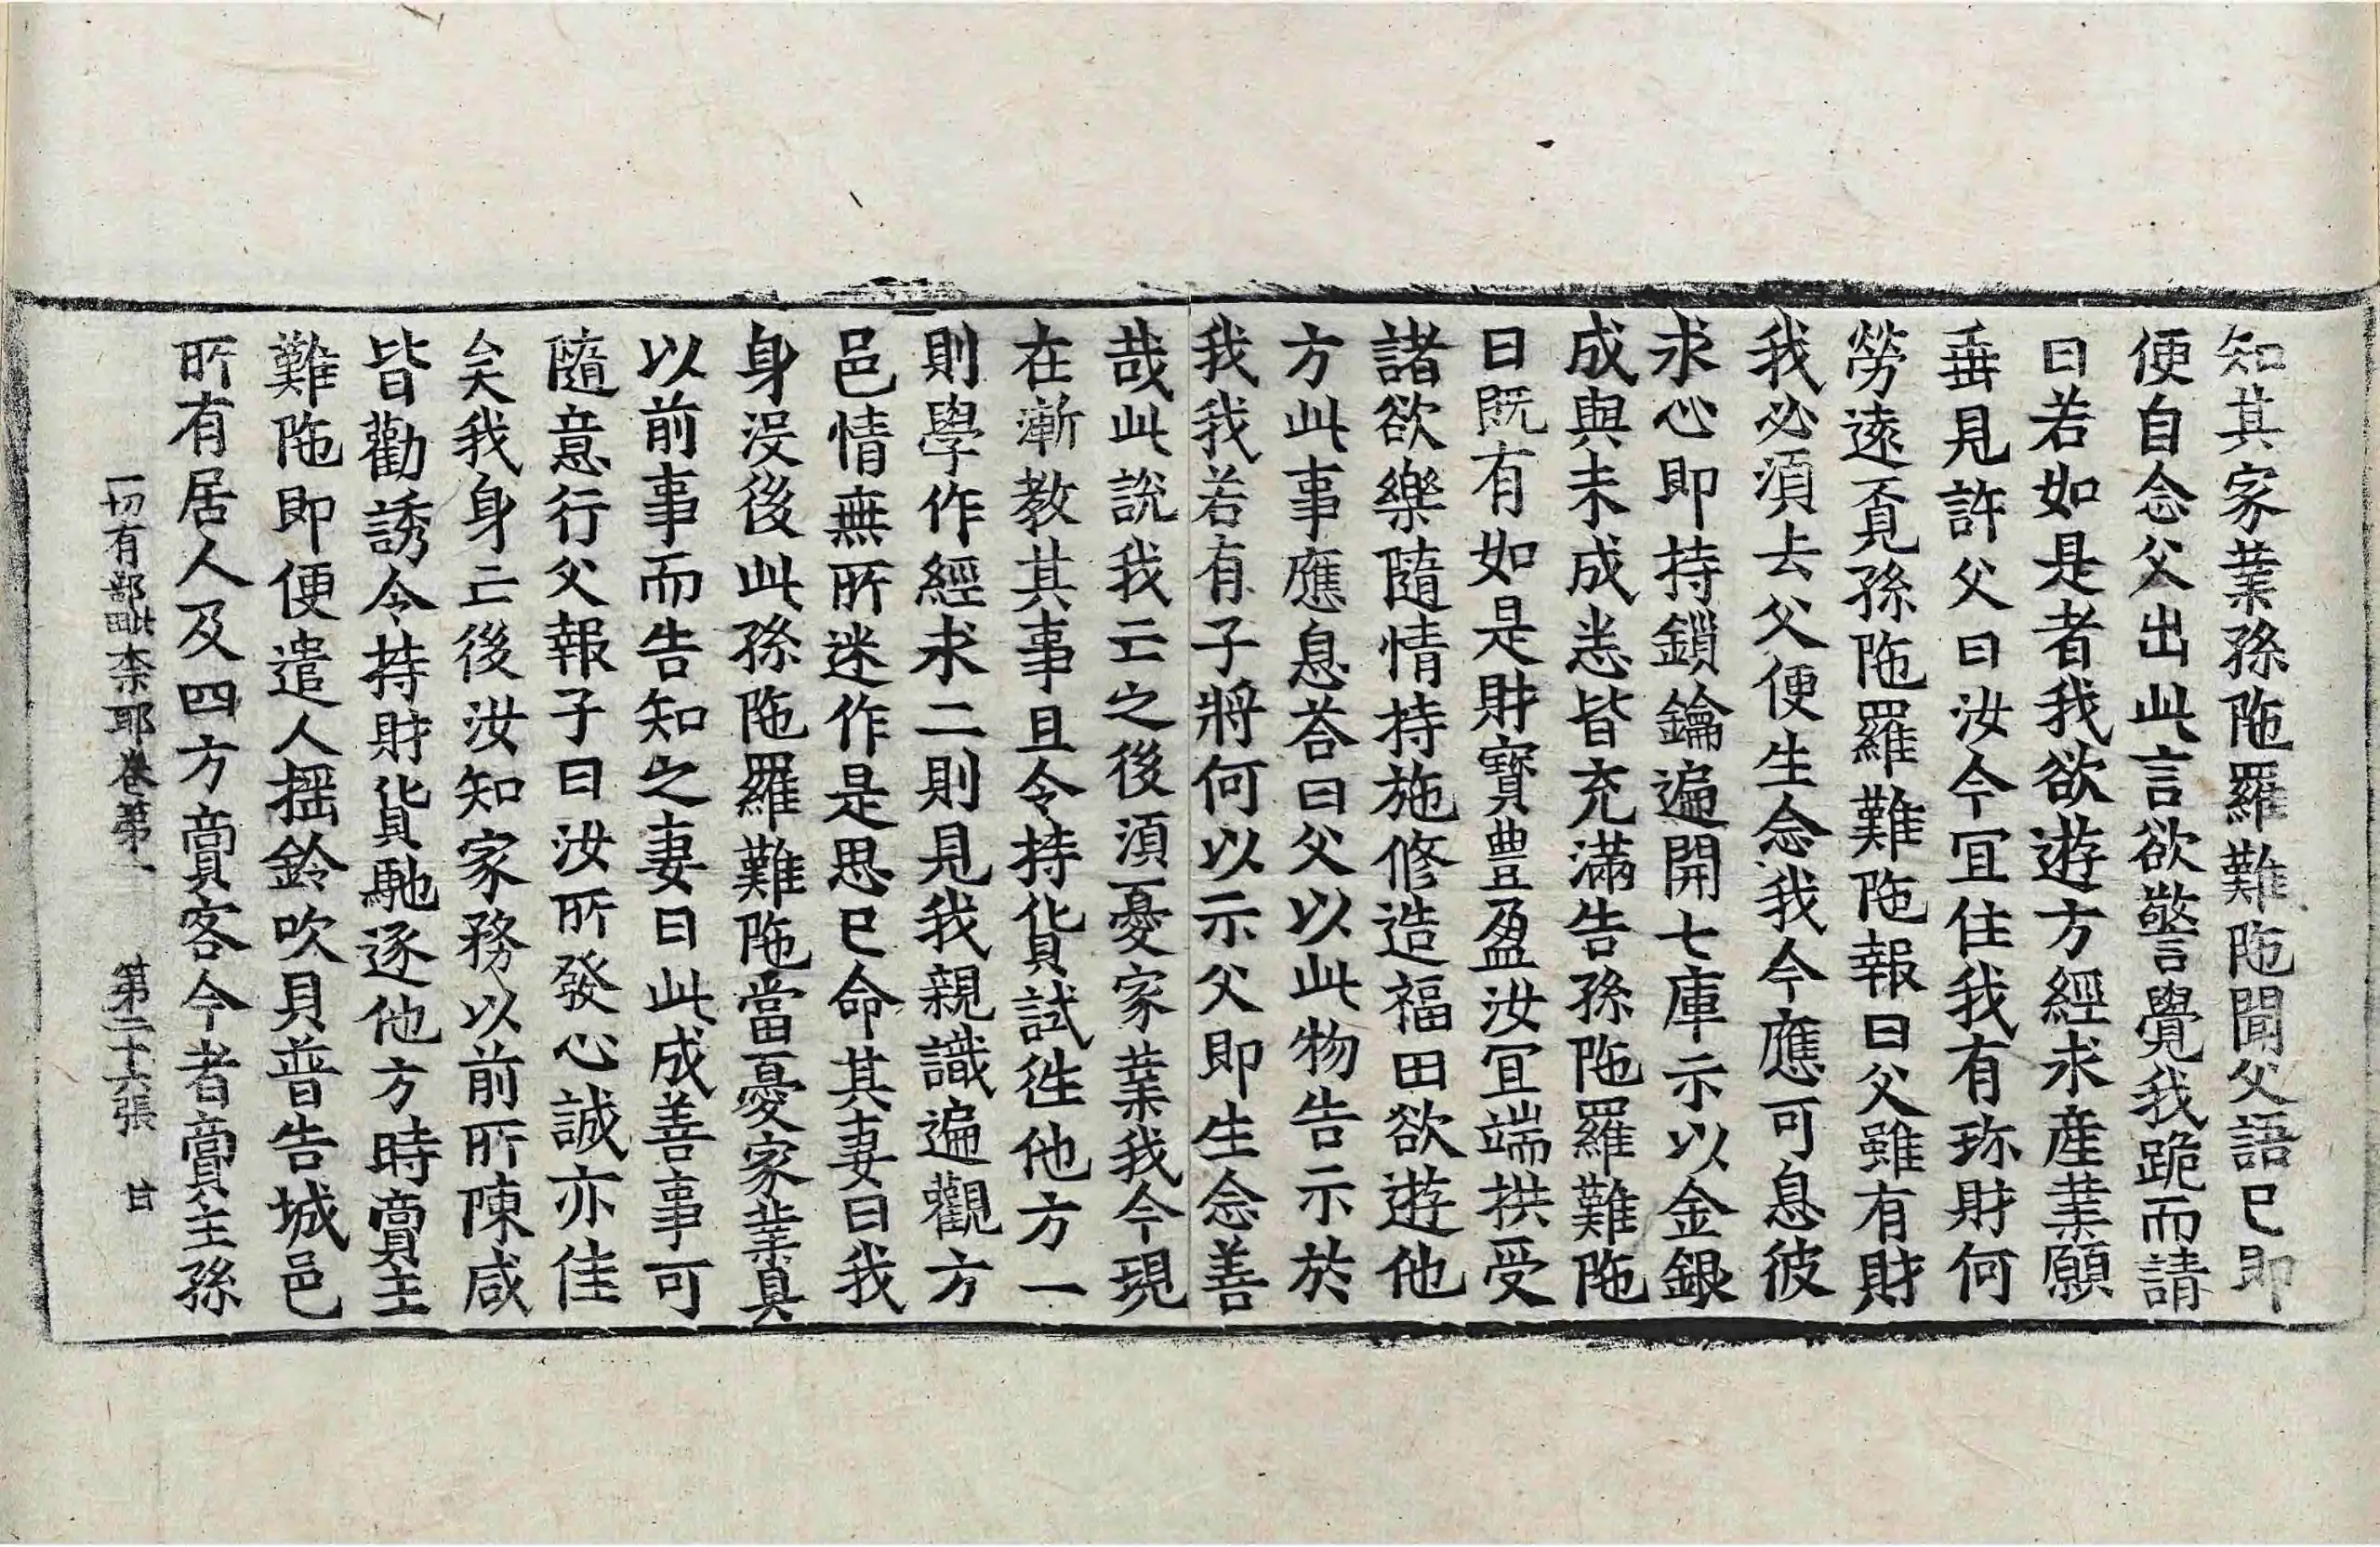 知其家業孫陁羅難陁聞父語已即
便自念父出此言欲警覺我跪而請
曰若如是者我欲遊方經求産業願
垂見許父曰汝今冝住我有珎財何
勞遠覔孫陁羅難陁報曰父雖有財
我必須去父便生念我今應可息彼
求心即持鎖鑰遍開七庫示以金銀
成與未成悉皆充滿告孫陁羅難陁
曰既有如是財寶豊盈汝冝端拱受
諸欲樂隨情持施修造福田欲遊他
方此事應息荅曰父以此物告示於
我我若有子將何以示父即生念善
哉此說我亡之後須憂家業我今現
在漸教其事且令持貨試徃他方一
則學作經求二則見我親識遍觀方
邑情無所迷作是思已命其妻曰我
身没後此孫陁羅難陁當憂家業具
以前事而告知之妻曰此成善事可
隨意行父報子曰汝所發心誠亦佳
矣我身亡後汝知家務以前所陳咸
皆勸誘令持財貨馳逐他方時賣主
難陁即便遣人摇鈴吹貝普告城邑
所有居人及四方賣客今者賣主孫
一切有部毗柰耶卷第一 第二十六張 甘